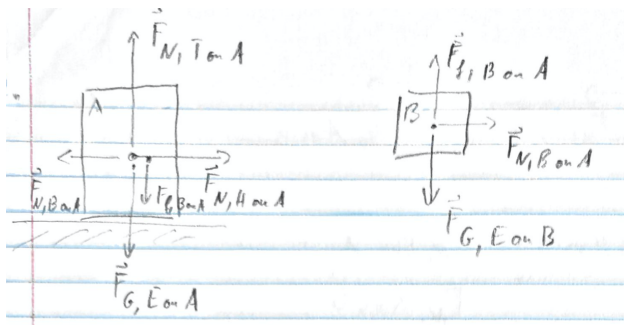 F⃗ N, T on A
A
F⃗ N, B on A
F f, B on A
F⃗ N, H on A
F⃗ G, E on A
F⃗ f, B on A
B
F⃗ N, B on A
F⃗ G, E on B